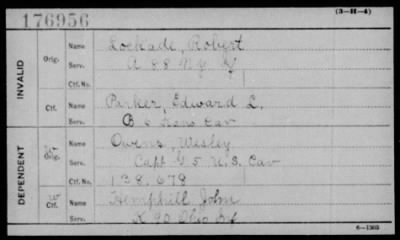 176956
(3-H-4)
INVALID
Orig.
Name Lockade, Robert
Serv. A 88 N.Y. Inf
Ctf. No.
Ctf.
Name Parker, Edward L.
Serv. B 8 Tenn Cav
DEPENDENT
Orig.
Name Owens, Wesley
Serv. Capt G 5 U.S. Cav
Ctf. No. 138,679
Ctf.
Name Hemphill, John
Serv. K 90 Ohio Inf
6-1303